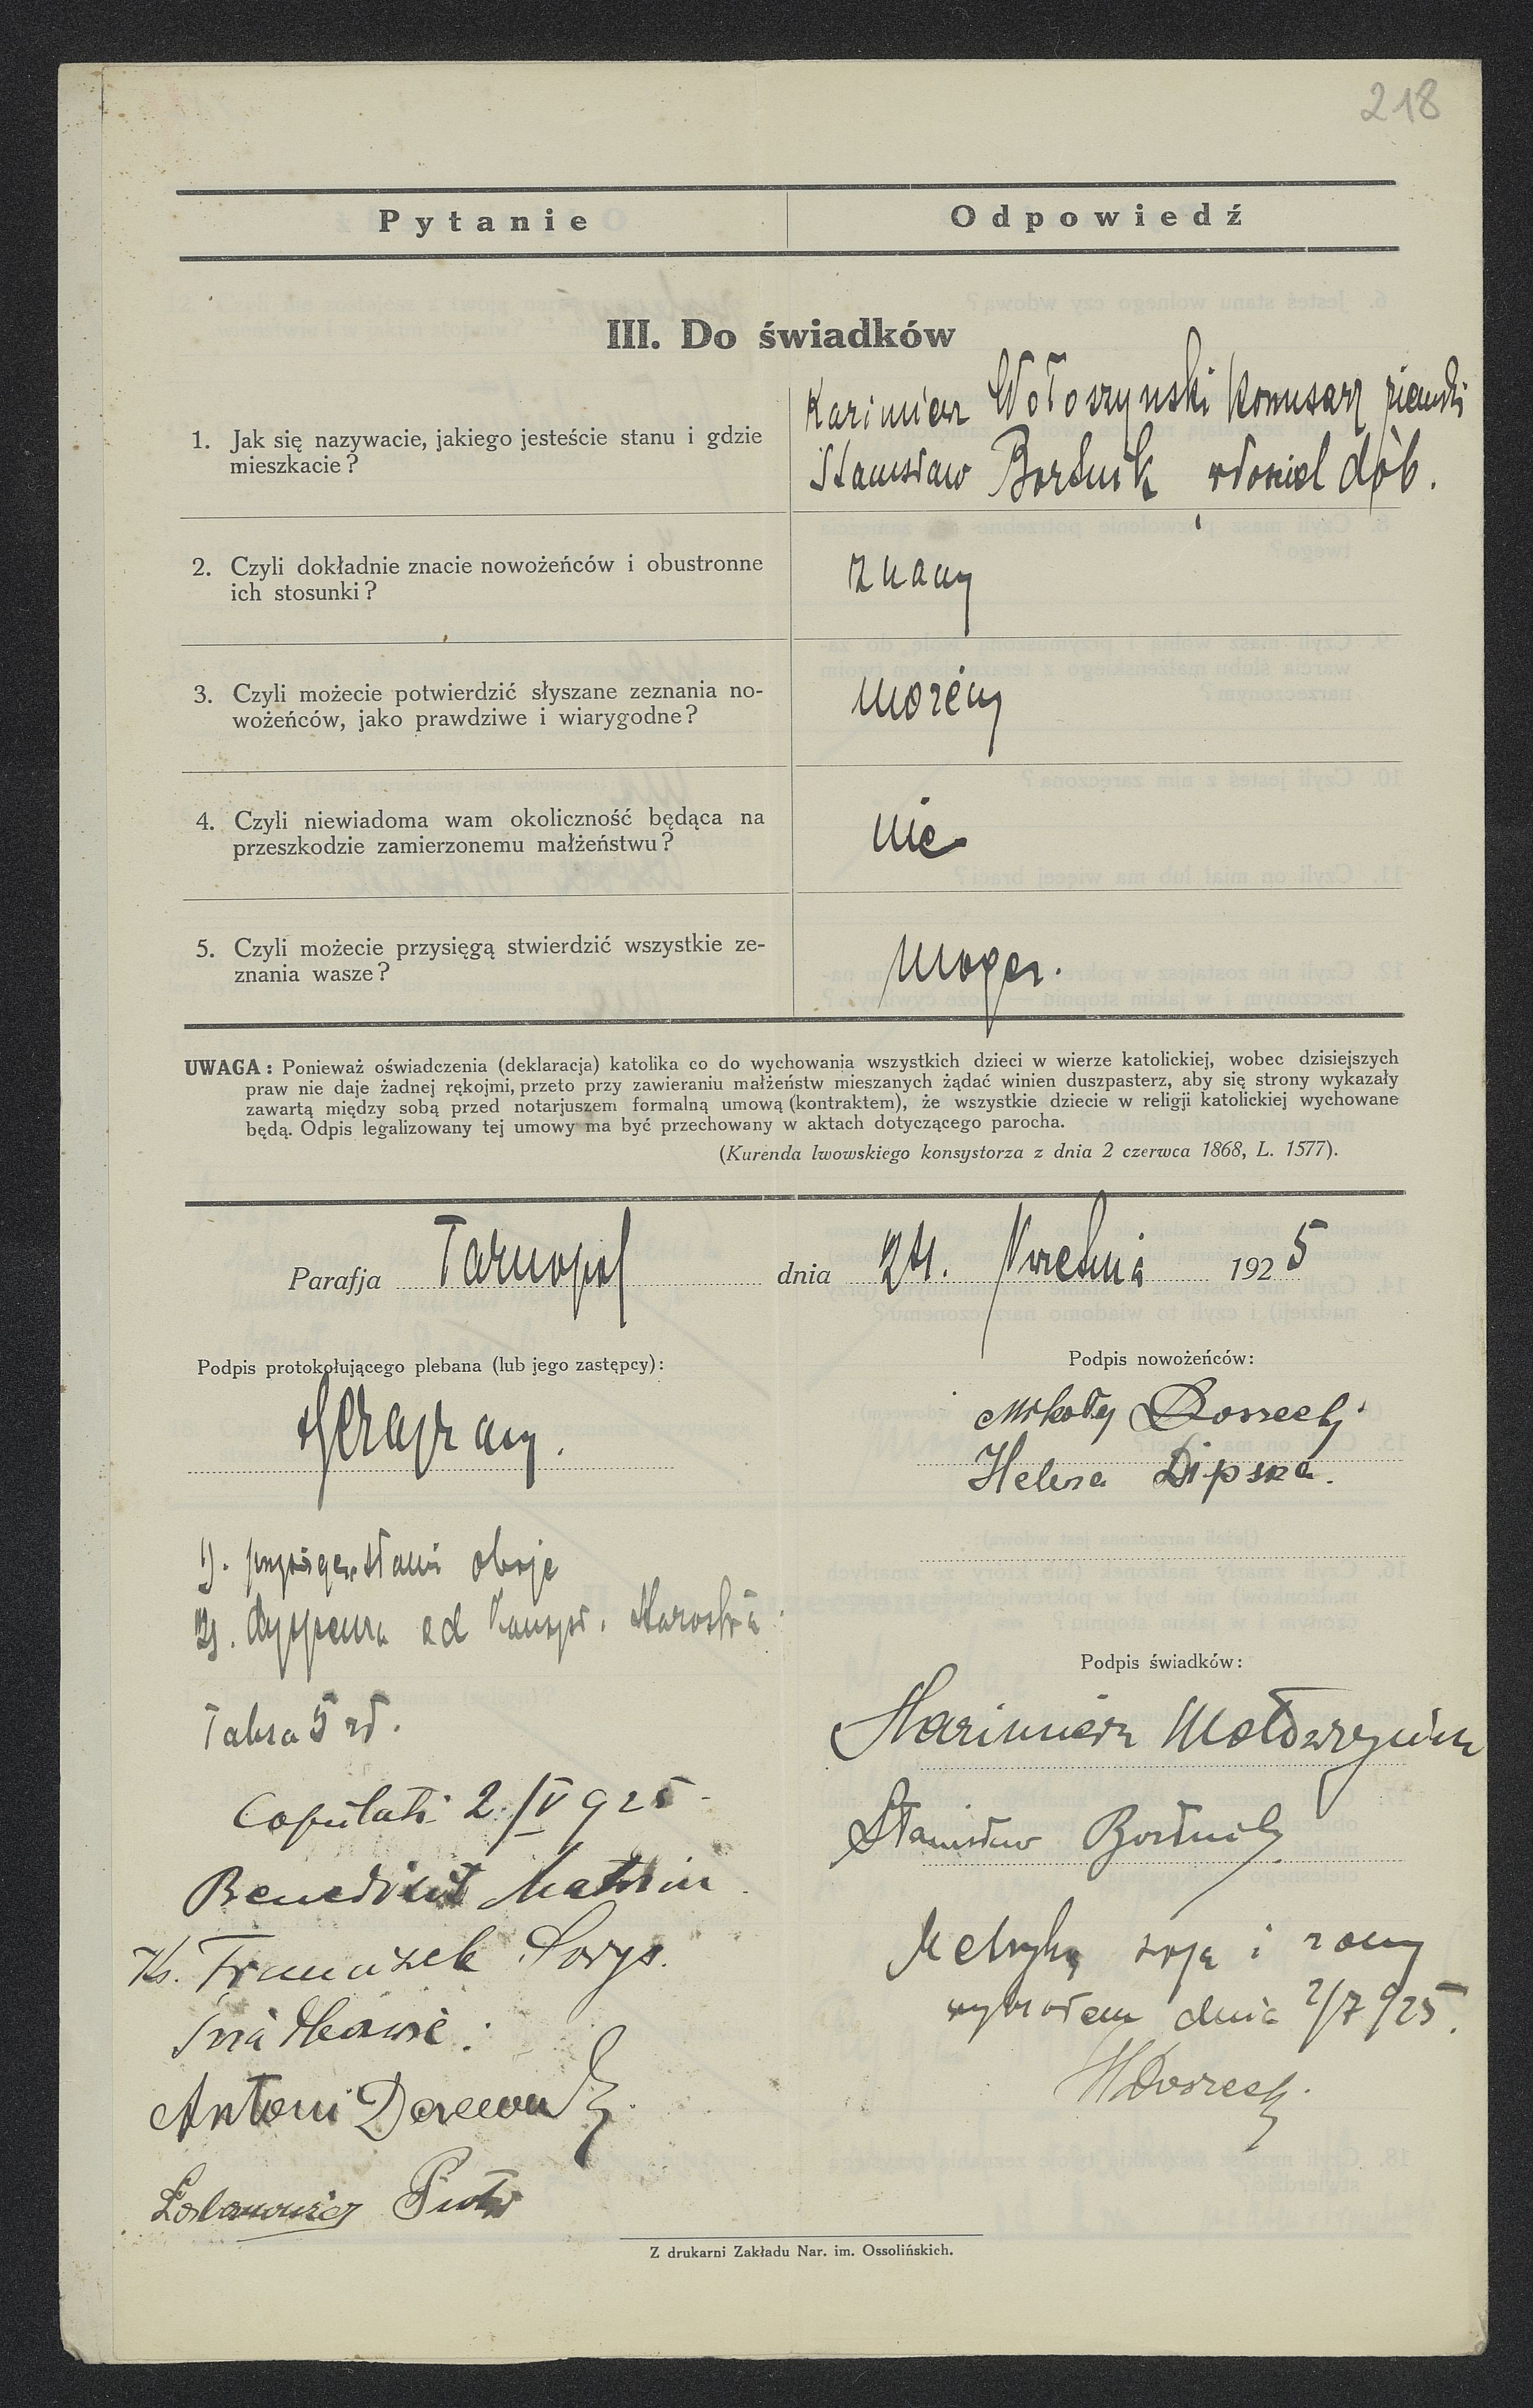 218
Pytanie
Odpowiedź
III. Do świadków
1. Jak się nazywacie, jakiego jesteście stanu i gdzie
mieszkacie?
Kazimierz Wołoszynski Komisarz ziemski
Stanisław Bortnik właściciel dób.
2. Czyli dokładnie znacie nowożeńców i obustronne
ich stosunki?
znamy
3. Czyli możecie potwierdzić słyszane zeznania no-
wożeńców, jako prawdziwe i wiarygodne?
możemy
4. Czyli niewiadoma wam okoliczność będąca na
przeszkodzie zamierzonemu małżeństwu?
nie
5. Czyli możecie przysięgą stwierdzić wszystkie ze-
znania wasze?
UWAGA: Ponieważ oświadczenia (deklaracja) katolika co do wychowania wszystkich dzieci w wierze katolickiej, wobec dzisiejszych
praw nie daje żadnej rękojmi, przeto przy zawieraniu małżeństw mieszanych żądać winien duszpasterz, aby się strony wykazały
zawartą między sobą przed notarjuszem formalną umową (kontraktem), że wszystkie dziecie w religji katolickiej wychowane
będą. Odpis legalizowany tej umowy ma być przechowany w aktach dotyczącego parocha.
(Kurenda lwowskiego konsystorza z dnia 2 czerwca 1868, L. 1577).
Parafja Tarnopol dnia 24. 1925
Podpis protokołującego plebana (lub jego zastępcy):
Podpis nowożeńców:
Mikołaj
Helena Lipska.
1). oboje
2). dyspensa od Starostwa
Taksa 5 zł.
Podpis świadków:
Kazimierz
Stanisław Bortnik
Copulati 2/V 925.
Benedikt
Ks. Franciszek
Świadkowie:
Antoni
Piotr
Metrykę swoją i żony
wybrałem dnia 2/7 925.
Z drukarni Zakładu Nar. im. Ossolińskich.